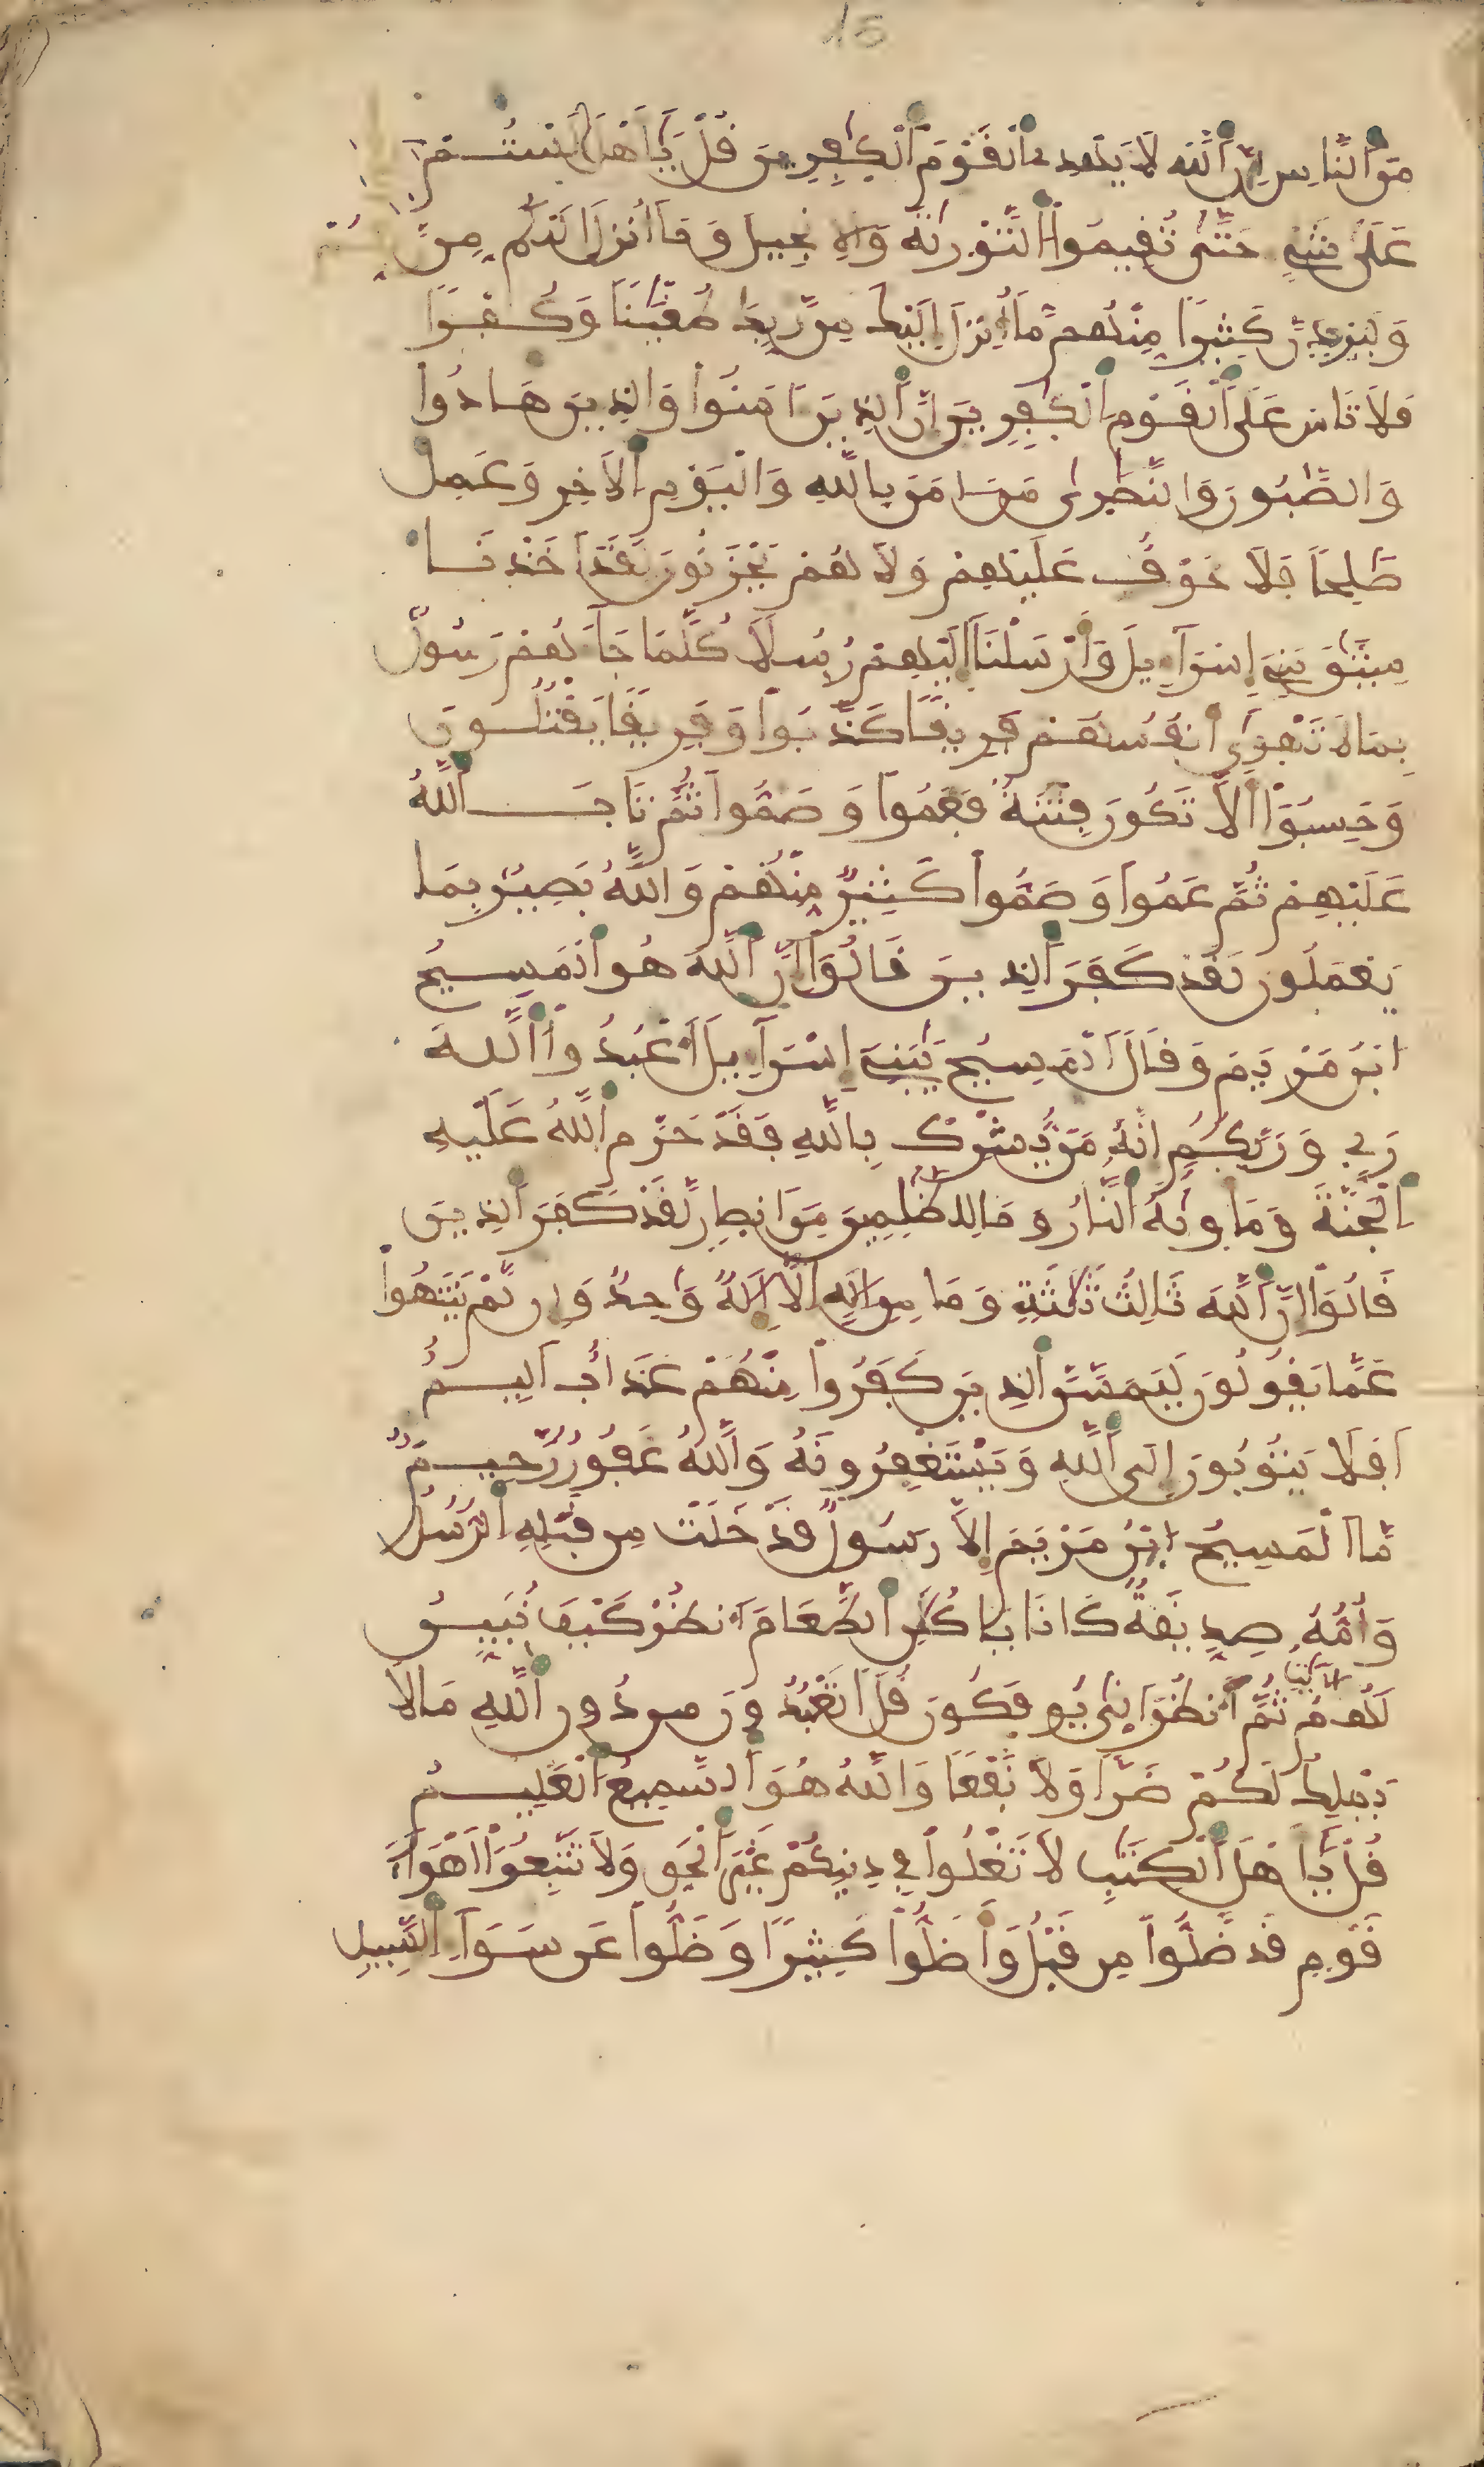 15
مِنَ اَ۬لنَّاسِ إِنَّ اَ۬للَّهَ لَا يَهْدِے اِ۬لْقَوْمَ اَ۬لْكٰفِرِينَ قُلْ يَٰٓأَهْلَ لَسْتُمْ
عَلَىٰ شَےْءٍ حَتَّىٰ تُقِيمُوا۟ اُ۬لتَّوْرَىٰةَ وَالِانجِيلَ وَمَآ أُنزِلَ إِلَيْكُم مِّن
وَلَيَزِيدَنَّ كَثِيرًا مِّنْهُم مَّآ أُنزِلَ إِلَيْكَ مِن رَّبِّكَ طُغْيَٰنًا وَكُفْرًا
فَلَا تَاسَ عَلَى اَ۬لْقَوْمِ اِ۬لْكٰفِرِينَ إِنَّ اَ۬لذِينَ ءَامَنُوا۟ وَالذِينَ هَادُوا۟
وَالصَّٰبُونَ وَالنَّصَٰرَىٰ مَنَ اٰمَنَ بِاللَّهِ وَالْيَوْمِ اِ۬لَاخِرِ وَعَمِلَ
صَٰلِحًا فَلَا خَوْفٌ عَلَيْهِمْ وَلَا هُمْ يَحْزَنُونَ لَقَدَ اَخَذْنَا
مِيثَٰقَ بَنِےٓ إِسْرَآءِيلَ وَأَرْسَلْنَآ إِلَيْهِمْ رُسُلًا كُلَّمَا جَآءَهُمْ رَسُولٌۢ
بِمَا لَا تَهْوَىٰٓ أَنفُسُهُمْ فَرِيقًا كَذَّبُوا۟ وَفَرِيقًا يَقْتُلُونَ
وَحَسِبُوٓا۟ أَلَّا تَكُونَ فِتْنَةٌ فَعَمُوا۟ وَصَمُّوا۟ ثُمَّ تَابَ اَ۬للَّهُ
عَلَيْهِمْ ثُمَّ عَمُوا۟ وَصَمُّوا۟ كَثِيرٌ مِّنْهُمْ وَاللَّهُ بَصِيرٌۢ بِمَا
يَعْمَلُونَ لَقَدْ كَفَرَ اَ۬لذِينَ قَالُوٓا۟ إِنَّ اَ۬للَّهَ هُوَ اَ۬لْمَسِيحُ
اُ۪بْنُ مَرْيَمَ وَقَالَ اَ۬لْمَسِيحُ يَٰبَنِےٓ إِسْرَآءِيلَ اَ۟عْبُدُوا۟ اُ۬للَّهَ
رَبِّے وَرَبَّكُمُۥٓ إِنَّهُۥ مَنْ يُّشْرِكْ بِاللَّهِ فَقَدْ حَرَّمَ اَ۬للَّهُ عَلَيْهِ
اِ۬لْجَنَّةَ وَمَأْوَىٰهُ اُ۬لنَّارُ وَمَا لِلظَّٰلِمِينَ مِنَ انصِارٍ لَّقَدْ كَفَرَ اَ۬لذِينَ
قَالُوٓا۟ إِنَّ اَ۬للَّهَ ثَالِثُ ثَلَٰثَةٍ وَمَا مِنِ اِلَٰهٍ اِلَّآ إِلَٰهٌ وَٰحِدٌ وَإِن لَّمْ يَنتَهُوا۟
عَمَّا يَقُولُونَ لَيَمَسَّنَّ اَ۬لذِينَ كَفَرُوا۟ مِنْهُمْ عَذَابٌ اَلِيمٌ
اَفَلَا يَتُوبُونَ إِلَى اَ۬للَّهِ وَيَسْتَغْفِرُونَهُۥ وَاللَّهُ غَفُورٌ رَّحِيمٌ
مَّا اَ۬لْمَسِيحُ اُ۪بْنُ مَرْيَمَ إِلَّا رَسُولٌ قَدْ خَلَتْ مِن قَبْلِهِ اِ۬لرُّسُلُ
وَأُمُّهُۥ صِدِّيقَةٌ كَانَا يَاكُلَٰنِ اِ۬لطَّعَامَ اَ۟نظُرْ كَيْفَ نُبَيِّنُ
لَهُمُ اُ۬لَايَٰتِ ثُمَّ اَ۟نظُرَ اَنَّىٰ يُوفَكُونَ قُلَ اَتَعْبُدُونَ مِن دُونِ اِ۬للَّهِ مَا لَا
يَمْلِكُ لَكُمْ ضَرًّا وَلَا نَفْعًا وَاللَّهُ هُوَ اَ۬لسَّمِيعُ اُ۬لْعَلِيمُ
قُلْ يَٰٓأَهْلَ اَ۬لْكِتَٰبِ لَا تَغْلُوا۟ فِے دِينِكُمْ غَيْرَ اَ۬لْحَقِّ وَلَا تَتَّبِعُوٓا۟ أَهْوَآءَ
قَوْمٍ قَد ضَّلُّوا۟ مِن قَبْلُ وَأَضَلُّوا۟ كَثِيرًا وَضَلُّوا۟ عَن سَوَآءِ اِ۬لسَّبِيلِ